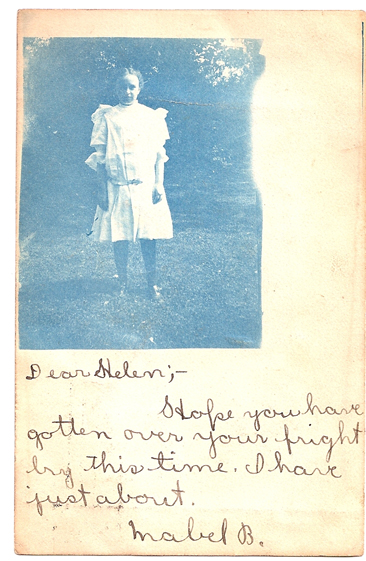 Dear Helen;-
Hope you have
gotten over your fright
by this time. I have
just about.
Mabel B.